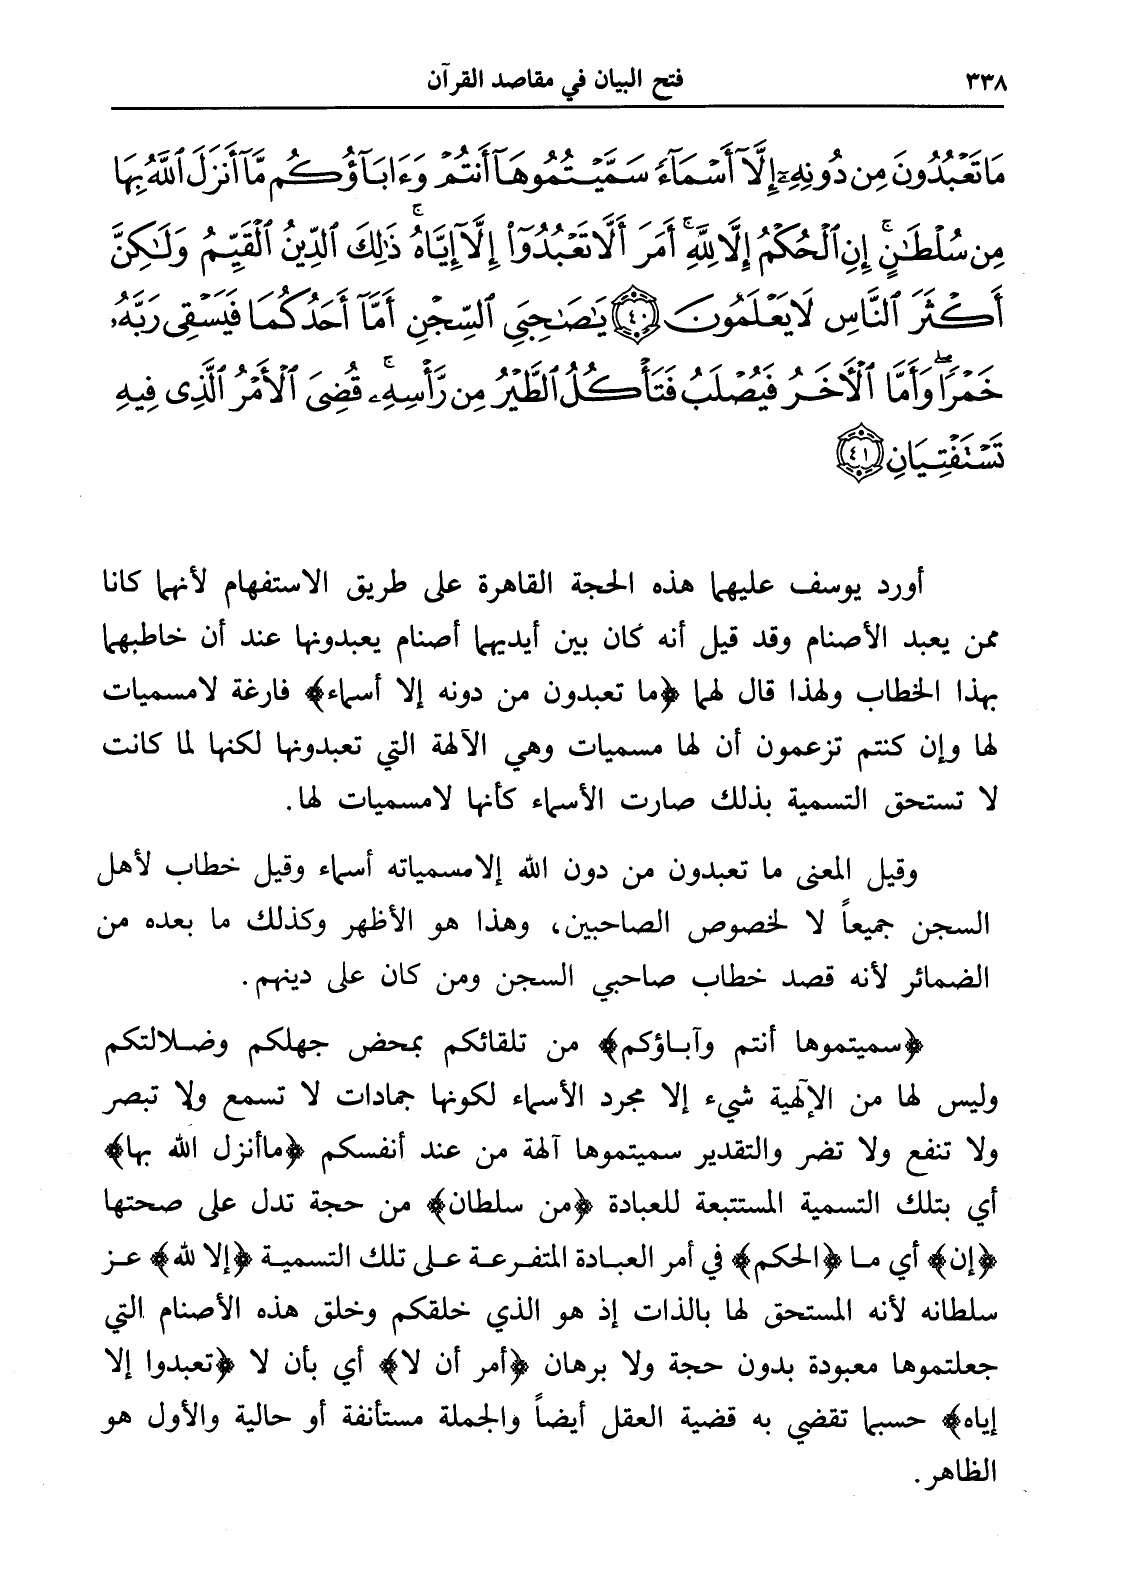 ٣٣٨ فتح البيان في مقاصد القرآن
مَا تَعْبُدُونَ مِن دُونِهِۦٓ إِلَّآ أَسْمَآءً سَمَّيْتُمُوهَآ أَنتُمْ وَءَابَآؤُكُم مَّآ أَنزَلَ ٱللَّهُ بِهَا
مِن سُلْطَٰنٍ ۚ إِنِ ٱلْحُكْمُ إِلَّا لِلَّهِ ۚ أَمَرَ أَلَّا تَعْبُدُوٓا۟ إِلَّآ إِيَّاهُ ۚ ذَٰلِكَ ٱلدِّينُ ٱلْقَيِّمُ وَلَٰكِنَّ
أَكْثَرَ ٱلنَّاسِ لَا يَعْلَمُونَ ﴿٤٠﴾ يَٰصَٰحِبَىِ ٱلسِّجْنِ أَمَّآ أَحَدُكُمَا فَيَسْقِى رَبَّهُۥ
خَمْرًا ۖ وَأَمَّا ٱلْءَاخَرُ فَيُصْلَبُ فَتَأْكُلُ ٱلطَّيْرُ مِن رَّأْسِهِۦ ۚ قُضِىَ ٱلْأَمْرُ ٱلَّذِى فِيهِ
تَسْتَفْتِيَانِ ﴿٤١﴾
أورد يوسف عليهما هذه الحجة القاهرة على طريق الاستفهام لأنهما كانا
ممن يعبد الأصنام وقد قيل أنه كان بين أيديهما أصنام يعبدونها عند أن خاطبهما
بهذا الخطاب ولهذا قال لهما ﴿ما تعبدون من دونه إلا أسماء﴾ فارغة لامسميات
لها وإن كنتم تزعمون أن لها مسميات وهي الآلهة التي تعبدونها لكنها لما كانت
لا تستحق التسمية بذلك صارت الأسماء كأنها لامسميات لها.
وقيل المعنى ما تعبدون من دون الله إلامسمياته أسماء وقيل خطاب لأهل
السجن جميعاً لا لخصوص الصاحبين، وهذا هو الأظهر وكذلك ما بعده من
الضمائر لأنه قصد خطاب صاحبي السجن ومن كان على دينهم.
﴿سميتموها أنتم وآباؤكم﴾ من تلقائكم بمحض جهلكم وضلالتكم
وليس لها من الإلهية شيء إلا مجرد الأسماء لكونها جمادات لا تسمع ولا تبصر
ولا تنفع ولا تضر والتقدير سميتموها آلهة من عند أنفسكم ﴿ماأنزل الله بها﴾
أي بتلك التسمية المستتبعة للعبادة ﴿من سلطان﴾ من حجة تدل على صحتها
﴿إن﴾ أي ما ﴿الحكم﴾ في أمر العبادة المتفرعة على تلك التسمية ﴿إلا لله﴾ عز
سلطانه لأنه المستحق لها بالذات إذ هو الذي خلقكم وخلق هذه الأصنام التي
جعلتموها معبودة بدون حجة ولا برهان ﴿أمر أن لا﴾ أي بأن لا ﴿تعبدوا إلا
إياه﴾ حسبما تقضي به قضية العقل أيضاً والجملة مستأنفة أو حالية والأول هو
الظاهر.